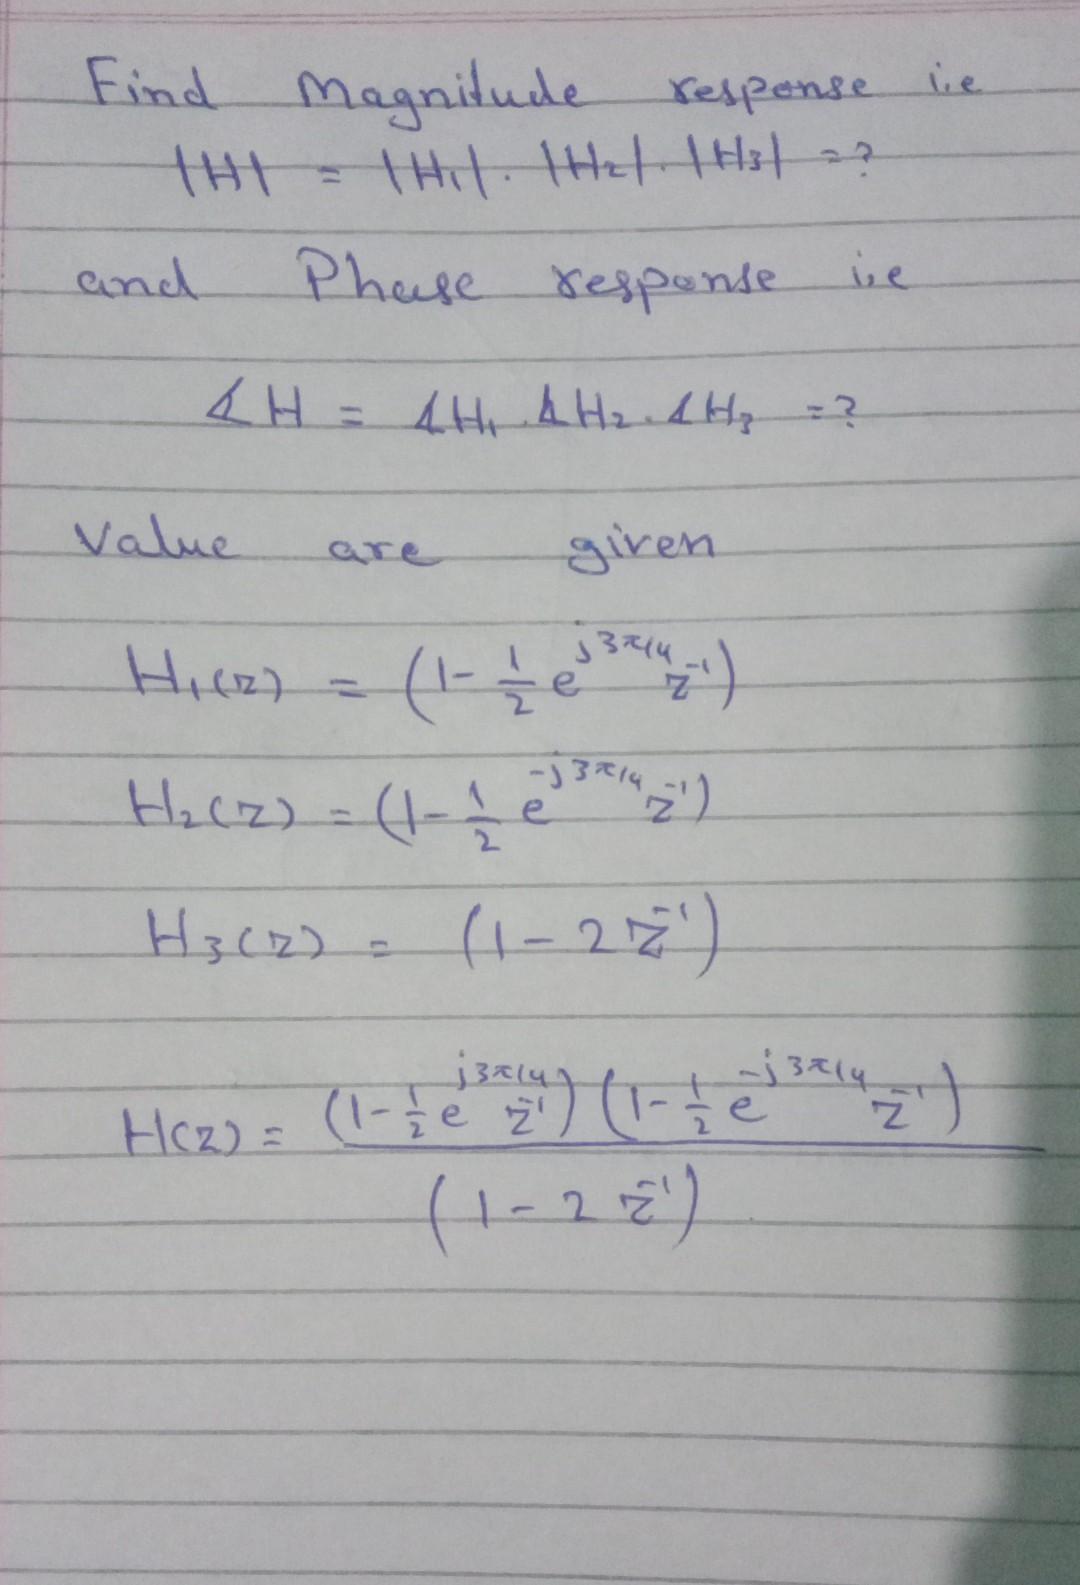 Find Magnitude response i.e
|H| = |H₁|. |H₂|. |H₃| = ?
and Phase response i.e
∡H = ∡H₁ . ∡H₂ . ∡H₃ = ?
Value are given
H₁(z) = (1 - 1/2 e^(j3π/4) z⁻¹)
H₂(z) = (1 - 1/2 e^(-j3π/4) z⁻¹)
H₃(z) = (1 - 2 z⁻¹)
H(z) = (1 - 1/2 e^(j3π/4) z⁻¹) (1 - 1/2 e^(-j3π/4) z⁻¹)
(1 - 2 z⁻¹)